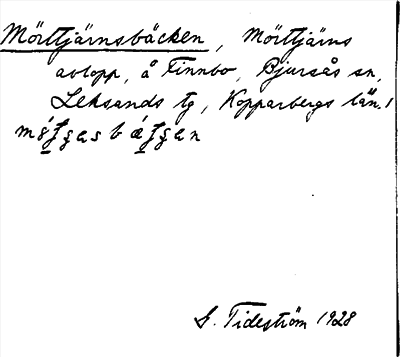 Mörttjärnsbäcken, Mörttjärns
avlopp, å Finnbo, Bjursås sn,
Leksands tg, Kopparbergs län.
S. Tideström 1928